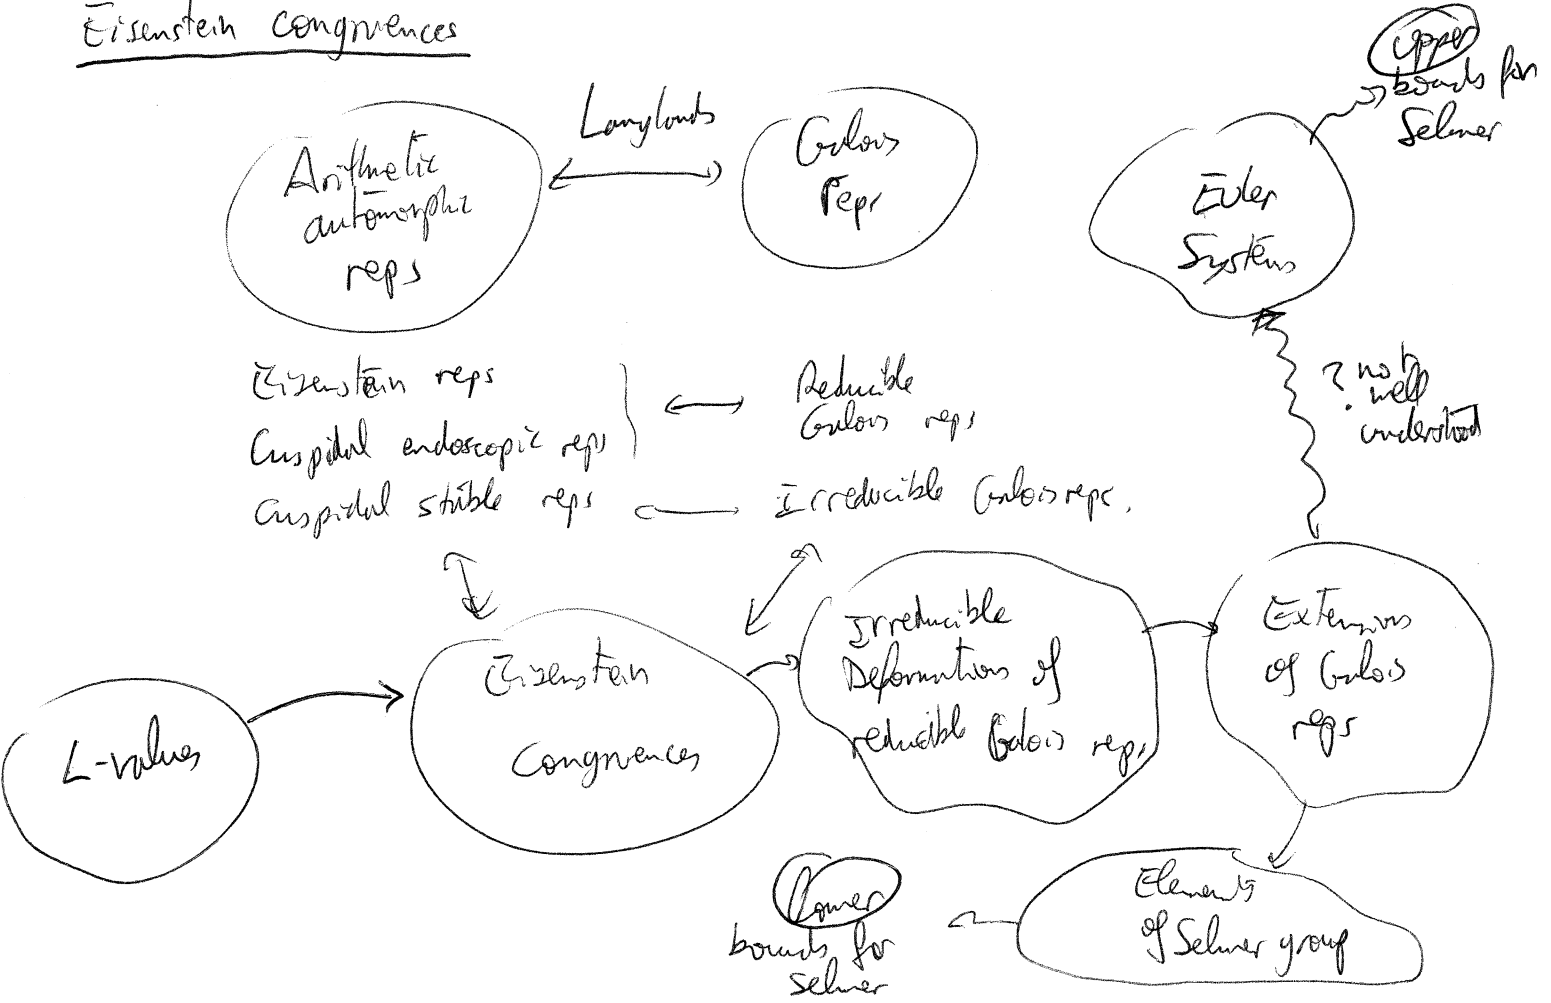 Eisenstein congruences
Upper
bounds for
Selmer
Langlands
Arithmetic
automorphic
reps
Galois
repr
Euler
Systems
Eisenstein reps
Cuspidal endoscopic reps
Cuspidal stable reps
Reducible
Galois reps
Irreducible Galois reps.
? not
well
understood
L-values
Eisenstein
congruences
Irreducible
Deformations of
reducible Galois reps.
Extensions
of Galois
reps
Elements
of Selmer group
lower
bounds for
selmer